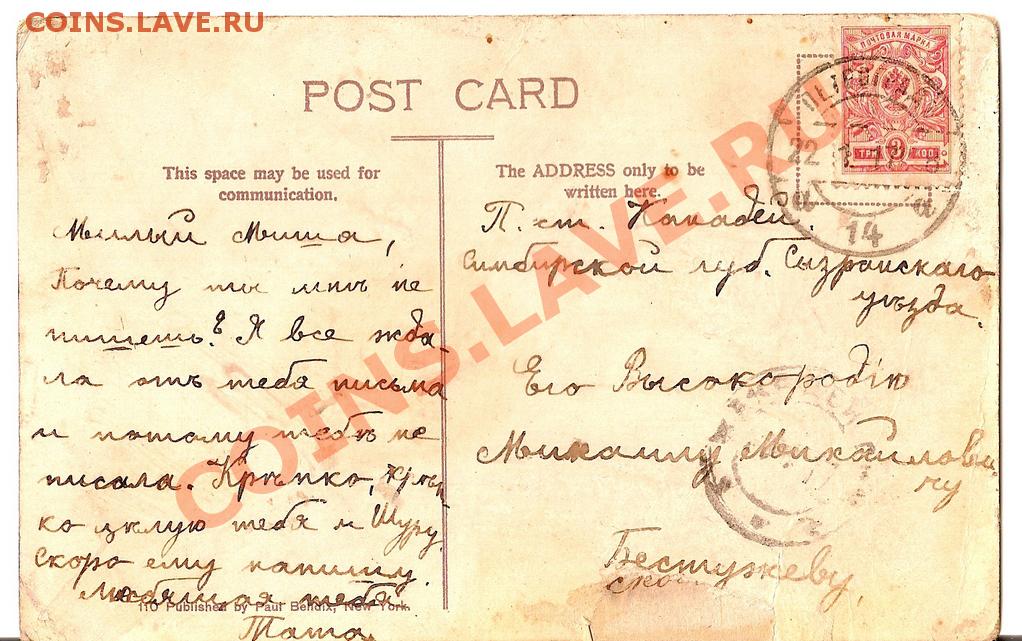 COINS.LAVE.RU
POST CARD
This space may be used for
communication.
The ADDRESS only to be
written here.
ПОЧТОВАЯ МАРКА
ТРИ 3 КОП.
22
a a
14
Милый Миша,
Почему ты мнѣ не
пишешь? Я все жда-
ла отъ тебя письма
и потому тебѣ не
писала. Крѣпко, крѣп
ко цѣлую тебя и Шуру.
Скоро ему напишу.
Любящая тебя
Тата.
П. ст. Канадей.
Симбирской губ. Сызранскаго
уѣзда.
Его Высокородію
Михаилу Михайлови-
чу
Бестужеву,
110 Published by Paul Bendix, New York.
COINS.LAVE.RU